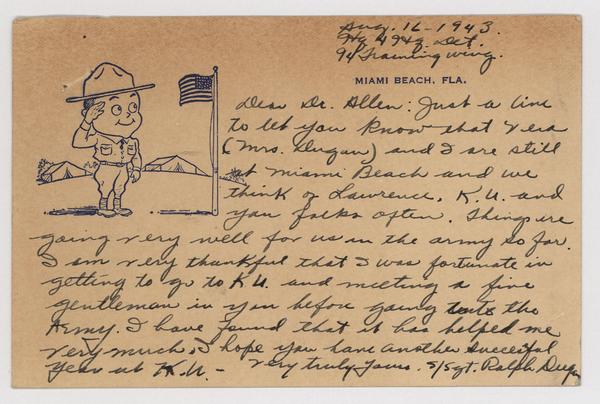 Aug. 16 - 1943.
Hq & Hq. Det.
94 Training Wing.
MIAMI BEACH, FLA.
Dear Dr. Allen: Just a line
to let you know that Vera
(Mrs. Dugan) and I are still
at Miami Beach and we
think of Lawrence, K.U. and
you folks often. Things are
going very well for us in the army so far.
I am very thankful that I was fortunate in
getting to go to K.U. and meeting a fine
gentleman in you before going the
Army. I have found that it has helped me
very much. I hope you have another succesful
year at K.U. - Very truly yours. S/Sgt. Ralph Dugan